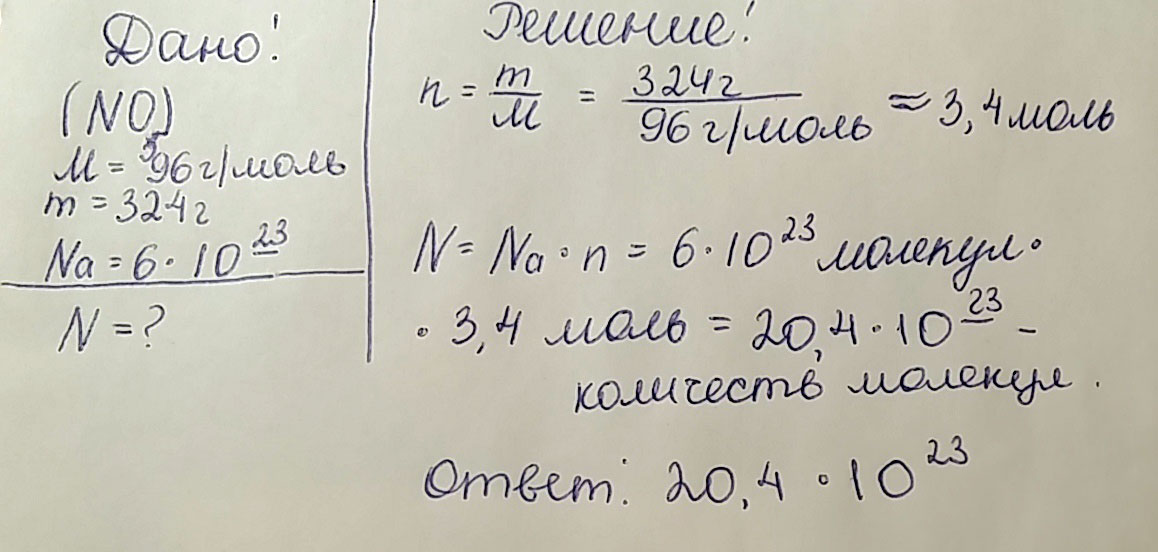 Дано!
(NO₃)
M = 96 г/моль
m = 324 г
Na = 6 · 10²³
N = ?
Решение!
n = m/M = 324 г/96 г/моль ≈ 3,4 моль
N = Na · n = 6 · 10²³ молекул ·
· 3,4 моль = 20,4 · 10²³ –
количеств молекул .
Ответ: 20,4 · 10²³